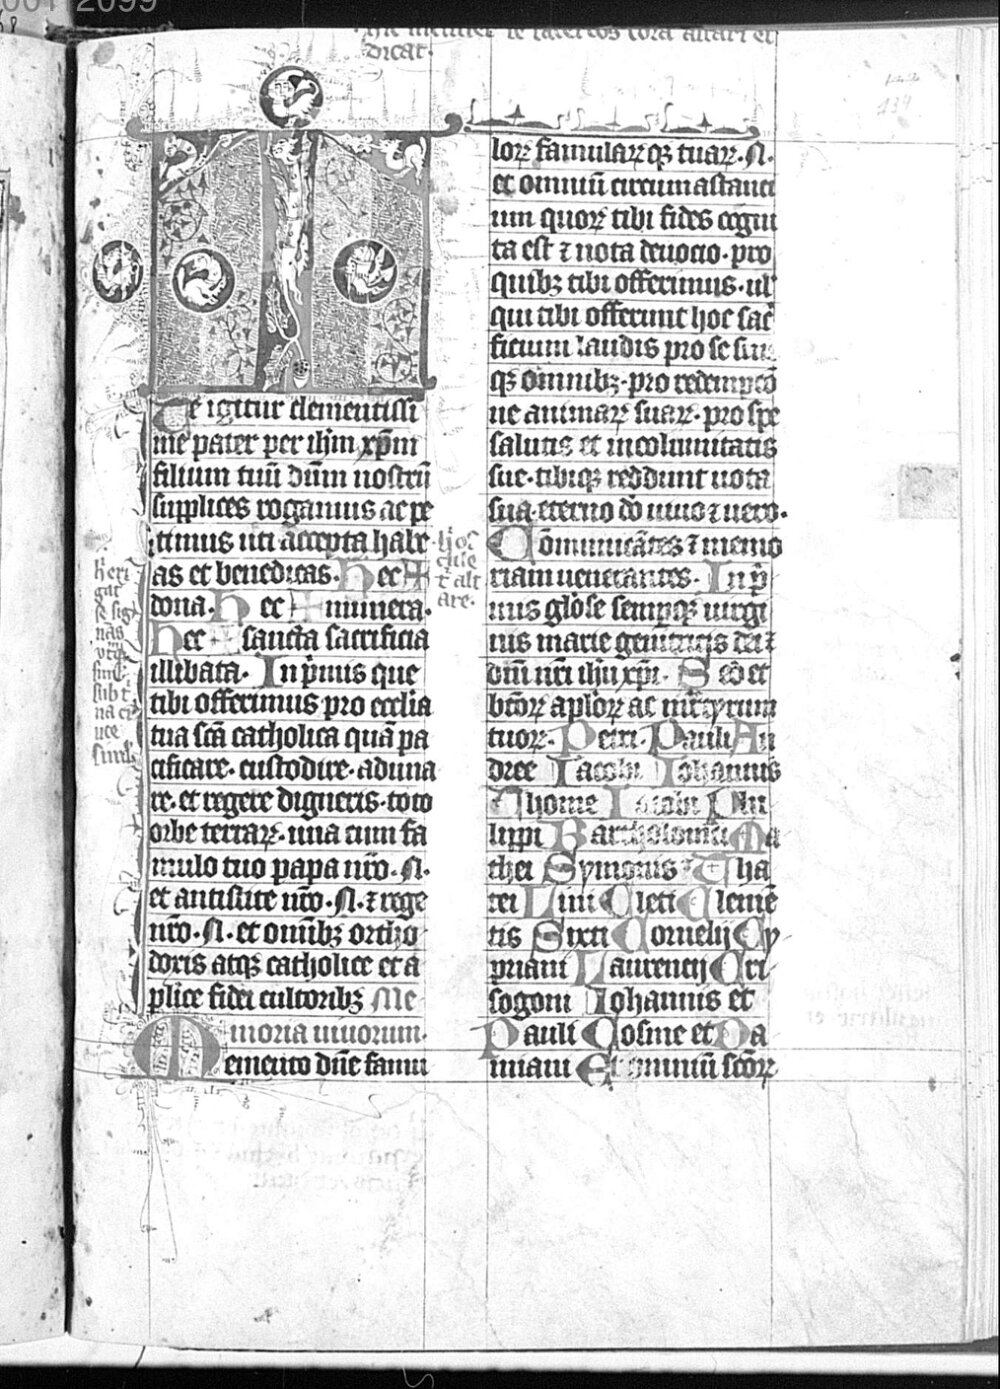 dicat.
Te igitur clementissi
me pater per ihm xpm
filium tuū dnm nostrū
supplices rogamus ac pe
timus uti accepta habe
as et benedicas. Hec +
dona. Hec + munera.
Hec + sancta sacrificia
illibata. In pmis que
tibi offerimus pro ecclia
tua scā catholica quā pa
cificare. custodire. aduna
re. et regere digneris. toto
orbe terraꝝ. una cum fa
mulo tuo papa nro. N.
et antistite nro. N. ⁊ rege
nro. N. et omibꝫ ortho
doxis atqꝫ catholice et a
plice fidei cultoribꝫ Me
moria uiuorum.
Memento dne famu
hoc
alt
are.
loꝝ famulaꝝ qꝫ tuaꝝ. N.
et omniū circumastanti
um quoꝝ tibi fides cogni
ta est ⁊ nota deuocio. pro
quibꝫ tibi offerimus. ul
qui tibi offerunt hoc sac
ficium laudis pro se suis
qꝫ omnibꝫ. pro redempcō
ne animaꝝ suaꝝ. pro spe
salutis et incolumitatis
sue. tibiqꝫ reddunt uota
sua eterno do uiuo ⁊ uero.
Cōmunicātes ⁊ memo
riam uenerantes. In p
mis glose sempqꝫ uirgi
nis marie genitricis dei ⁊
dni nri ihu xpi. Sed et
btoꝝ aploꝝ ac mrtyrum
tuoꝝ. Petri. Pauli An
dree Iacobi Iohannis
Thome Iacobi Phi
lippi Bartholomei Ma
thei Symonis ⁊ Tha
dei Lini Cleti Clemē
tis Sixti Cornelij Cy
priani Laurencij Cri
sogoni Iohannis et
Pauli Cosme et Da
miani Et omniū scoꝝ